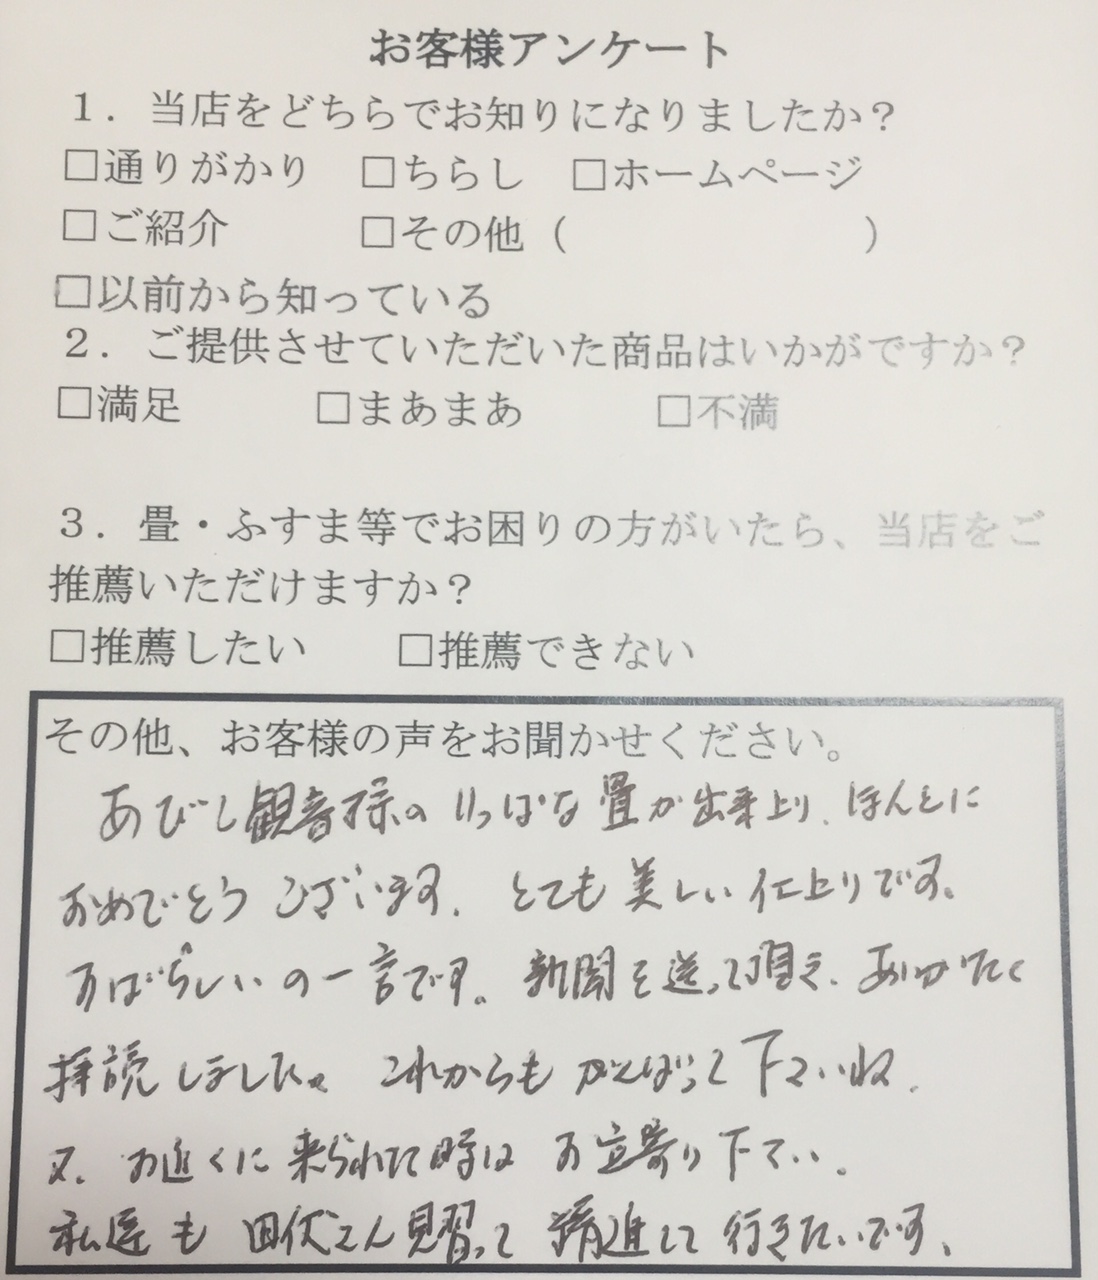 お客様アンケート
１．当店をどちらでお知りになりましたか？
□通りがかり　□ちらし　□ホームページ
□ご紹介　□その他（　　　　　　　）
□以前から知っている
２．ご提供させていただいた商品はいかがですか？
□満足　□まあまあ　□不満
３．畳・ふすま等でお困りの方がいたら、当店をご
推薦いただけますか？
□推薦したい　□推薦できない
その他、お客様の声をお聞かせください。
あびし観音様のりっぱな畳が出来上り、ほんとに
おめでとうございます。とても美しい仕上りです。
すばらしいの一言です。新聞を送って頂き、ありがたく
拝読しました。これからもがんばって下さいね。
又、お近くに来られた時はお立寄り下さい。
私達も田代さん見習って精進して行きたいです。